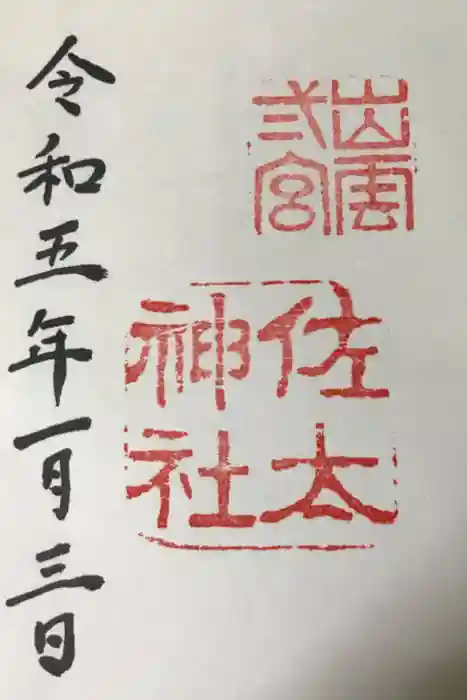 出雲
弎宮
佐太
神社
令和五年一月三日